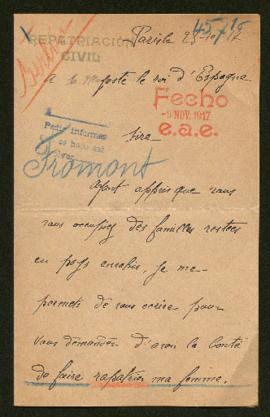 45/15
REPATRIACION
CIVIL
Paris le
a sa Majesté le roi d'Espagne
Fecho
-9 NOV. 1917
e.a.e.
Sire
Fromont
Ayant appris que vous
vous occupiez des familles restées
en pays envahis, je me
permets de vous écrire pour
vous demander d'avoir la bonté
de faire rapatrier ma femme.